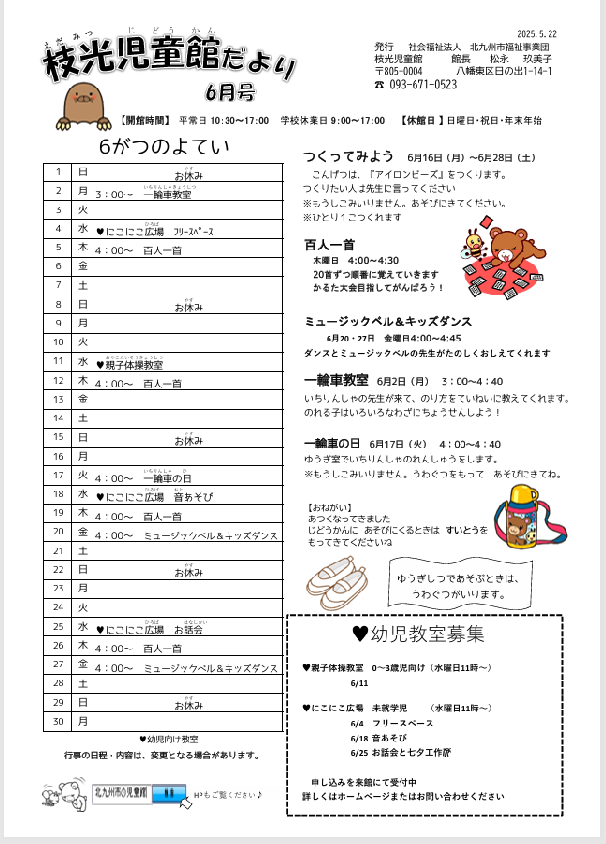 2025.5.22
枝光児童館だより
えだみつ じどうかん
6月号
発行 社会福祉法人 北九州市福祉事業団
枝光児童館 館長 松永 玖美子
〒805-0004 八幡東区日の出1-14-1
☎ 093-671-0523
【開館時間】 平常日 10:30～17:00 学校休業日 9:00～17:00 【休館日】日曜日・祝日・年末年始
6がつのよてい
1 日 お休み
2 月 3：00～ 一輪車教室
3 火
4 水 ♥にこにこ広場 フリースペース
5 木 4：00～ 百人一首
6 金
7 土
8 日 お休み
9 月
10 火
11 水 ♥親子体操教室
12 木 4：00～ 百人一首
13 金
14 土
15 日 お休み
16 月
17 火 4：00～ 一輪車の日
18 水 ♥にこにこ広場 音あそび
19 木 4：00～ 百人一首
20 金 4：00～ ミュージックベル＆キッズダンス
21 土
22 日 お休み
23 月
24 火
25 水 ♥にこにこ広場 お話会
26 木 4：00～ 百人一首
27 金 4：00～ ミュージックベル＆キッズダンス
28 土
29 日 お休み
30 月
♥幼児向け教室
行事の日程・内容は、変更となる場合があります。
北九州市の児童館 検索 HPもご覧ください♪
つくってみよう 6月16日（月）～6月28日（土）
こんげつは、『アイロンビーズ』をつくります。
つくりたい人は先生に言ってください
※もうしこみいりません。あそびにきてください。
※ひとり1こつくれます
百人一首
木曜日 4:00～4:30
20首ずつ順番に覚えていきます
かるた大会目指してがんばろう！
ミュージックベル＆キッズダンス
6月20・27日 金曜日4:00～4:45
ダンスとミュージックベルの先生がたのしくおしえてくれます
一輪車教室 6月2日（月） 3：00～4：40
いちりんしゃの先生が来て、のり方をていねいに教えてくれます。
のれる子はいろいろなわざにちょうせんしよう！
一輪車の日 6月17日（火） 4：00～4：40
ゆうぎ室でいちりんしゃのれんしゅうをします。
※もうしこみいりません。うわぐつをもって あそびにきてね。
【おねがい】
あつくなってきました
じどうかんに あそびにくるときは すいとうを
もってきてくださいね
ゆうぎしつであそぶときは、
うわぐつがいります。
♥幼児教室募集
♥親子体操教室 0～3歳児向け（水曜日11時～）
6/11
♥にこにこ広場 未就学児 （水曜日11時～）
6/4 フリースペース
6/18 音あそび
6/25 お話会と七夕工作
申し込みを来館にて受付中
詳しくはホームページまたはお問い合わせください